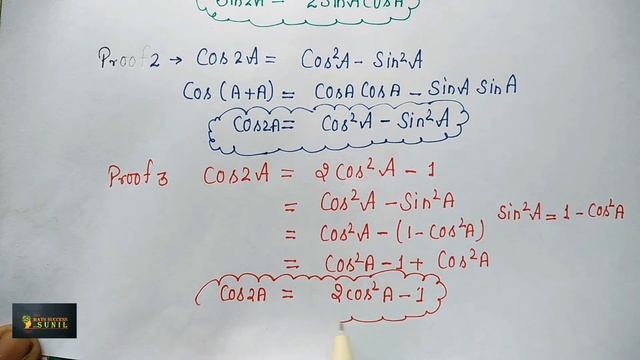 Sin2A = 2SinACosA
Proof2 → Cos2A = Cos²A - Sin²A
Cos (A+A) = CosA CosA - SinA SinA
Cos2A = Cos²A - Sin²A
Proof 3 Cos2A = 2Cos²A - 1
= Cos²A - Sin²A
Sin²A = 1 - Cos²A
= Cos²A - (1 - Cos²A)
= Cos²A - 1 + Cos²A
Cos2A = 2Cos²A - 1
MATH SUCCESS
SUNIL